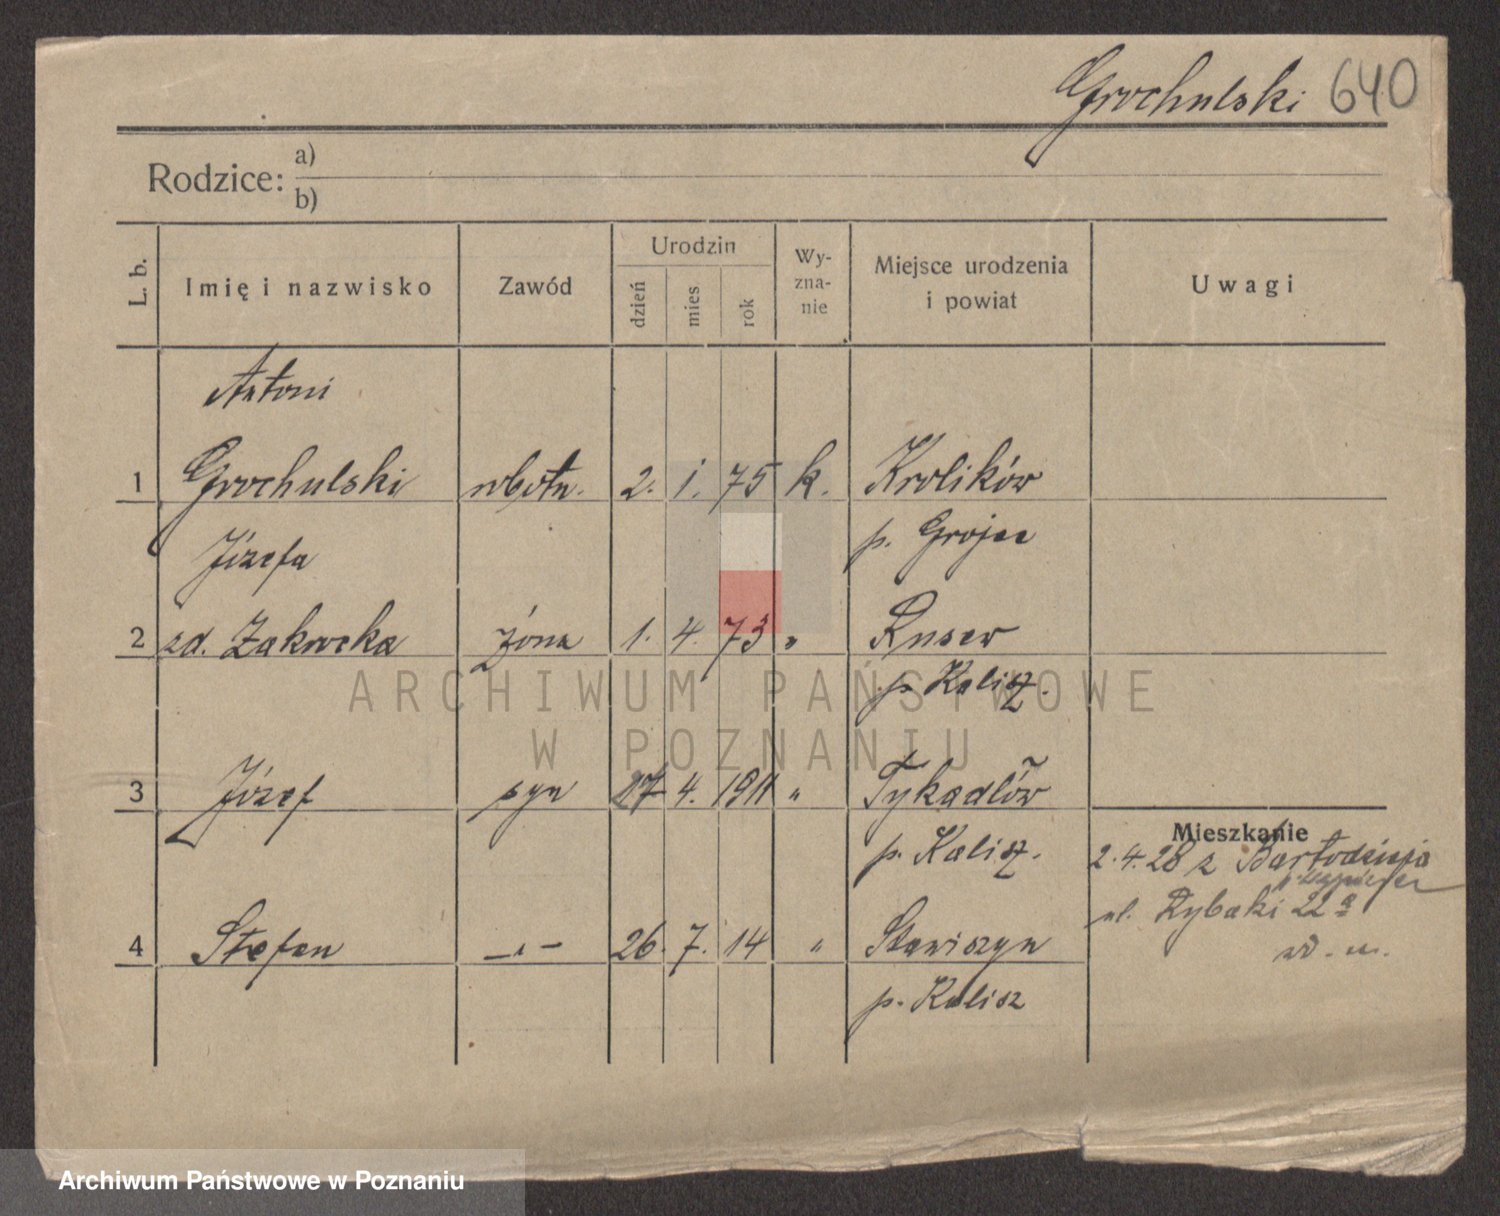 Grochulski 640
Rodzice: a)
b)
L. b. Imię i nazwisko Zawód Urodzin dzień mies rok Wy-zna-nie Miejsce urodzenia i powiat Uwagi
Antoni
1 Grochulski robotn. 2. 1. 75 k. Krolików
p. Grojec
Józefa
2 zd. Żakowska żona 1. 4. 73 " Rusew
p. Kalisz.
3 Józef syn 17 4. 1911 " Tykadłów
p. Kalisz.
Mieszkanie
2.4.28 z Bartodzieja
p. Wągrowiec
ul. Rybaki 22a
4 Stefan -"- 26. 7. 14 " Stawiszyn
p. Kalisz
ARCHIWUM PAŃSTWOWE
W POZNANIU
Archiwum Państwowe w Poznaniu